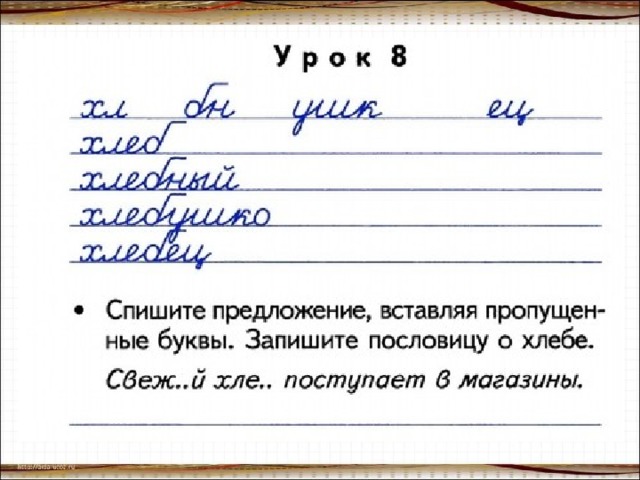 Урок 8
хл бн ушк ец
хлеб
хлебный
хлебушко
хлебец
• Спишите предложение, вставляя пропущен-
ные буквы. Запишите пословицу о хлебе.
Свеж..й хле.. поступает в магазины.